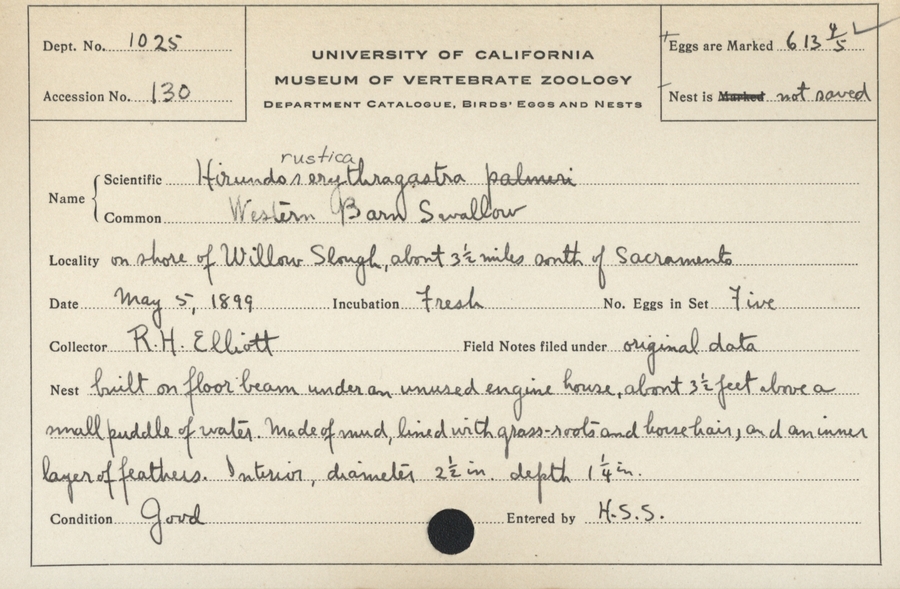 Dept. No. 1025
Accession No. 130
UNIVERSITY OF CALIFORNIA
MUSEUM OF VERTEBRATE ZOOLOGY
DEPARTMENT CATALOGUE, BIRDS' EGGS AND NESTS
Eggs are Marked 613 4/5
Nest is Marked not saved
rustica
Name Scientific Hirundo erythragastra palmeri
Common Western Barn Swallow
Locality on shore of Willow Slough, about 3½ miles south of Sacramento
Date May 5, 1899 Incubation Fresh No. Eggs in Set Five
Collector R.H. Elliott Field Notes filed under original data
Nest built on floor beam under an unused engine house, about 3½ feet above a
small puddle of water. Made of mud, lined with grass-roots and horsehair, and an inner
layer of feathers. Interior, diameter 2½ in. depth 1¼ in.
Condition Good Entered by H.S.S.